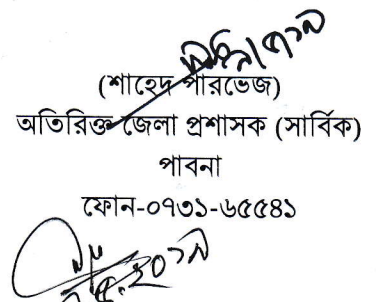 (শাহেদ পারভেজ)
অতিরিক্ত জেলা প্রশাসক (সার্বিক)
পাবনা
ফোন-০৭৩১-৬৫৫৪১